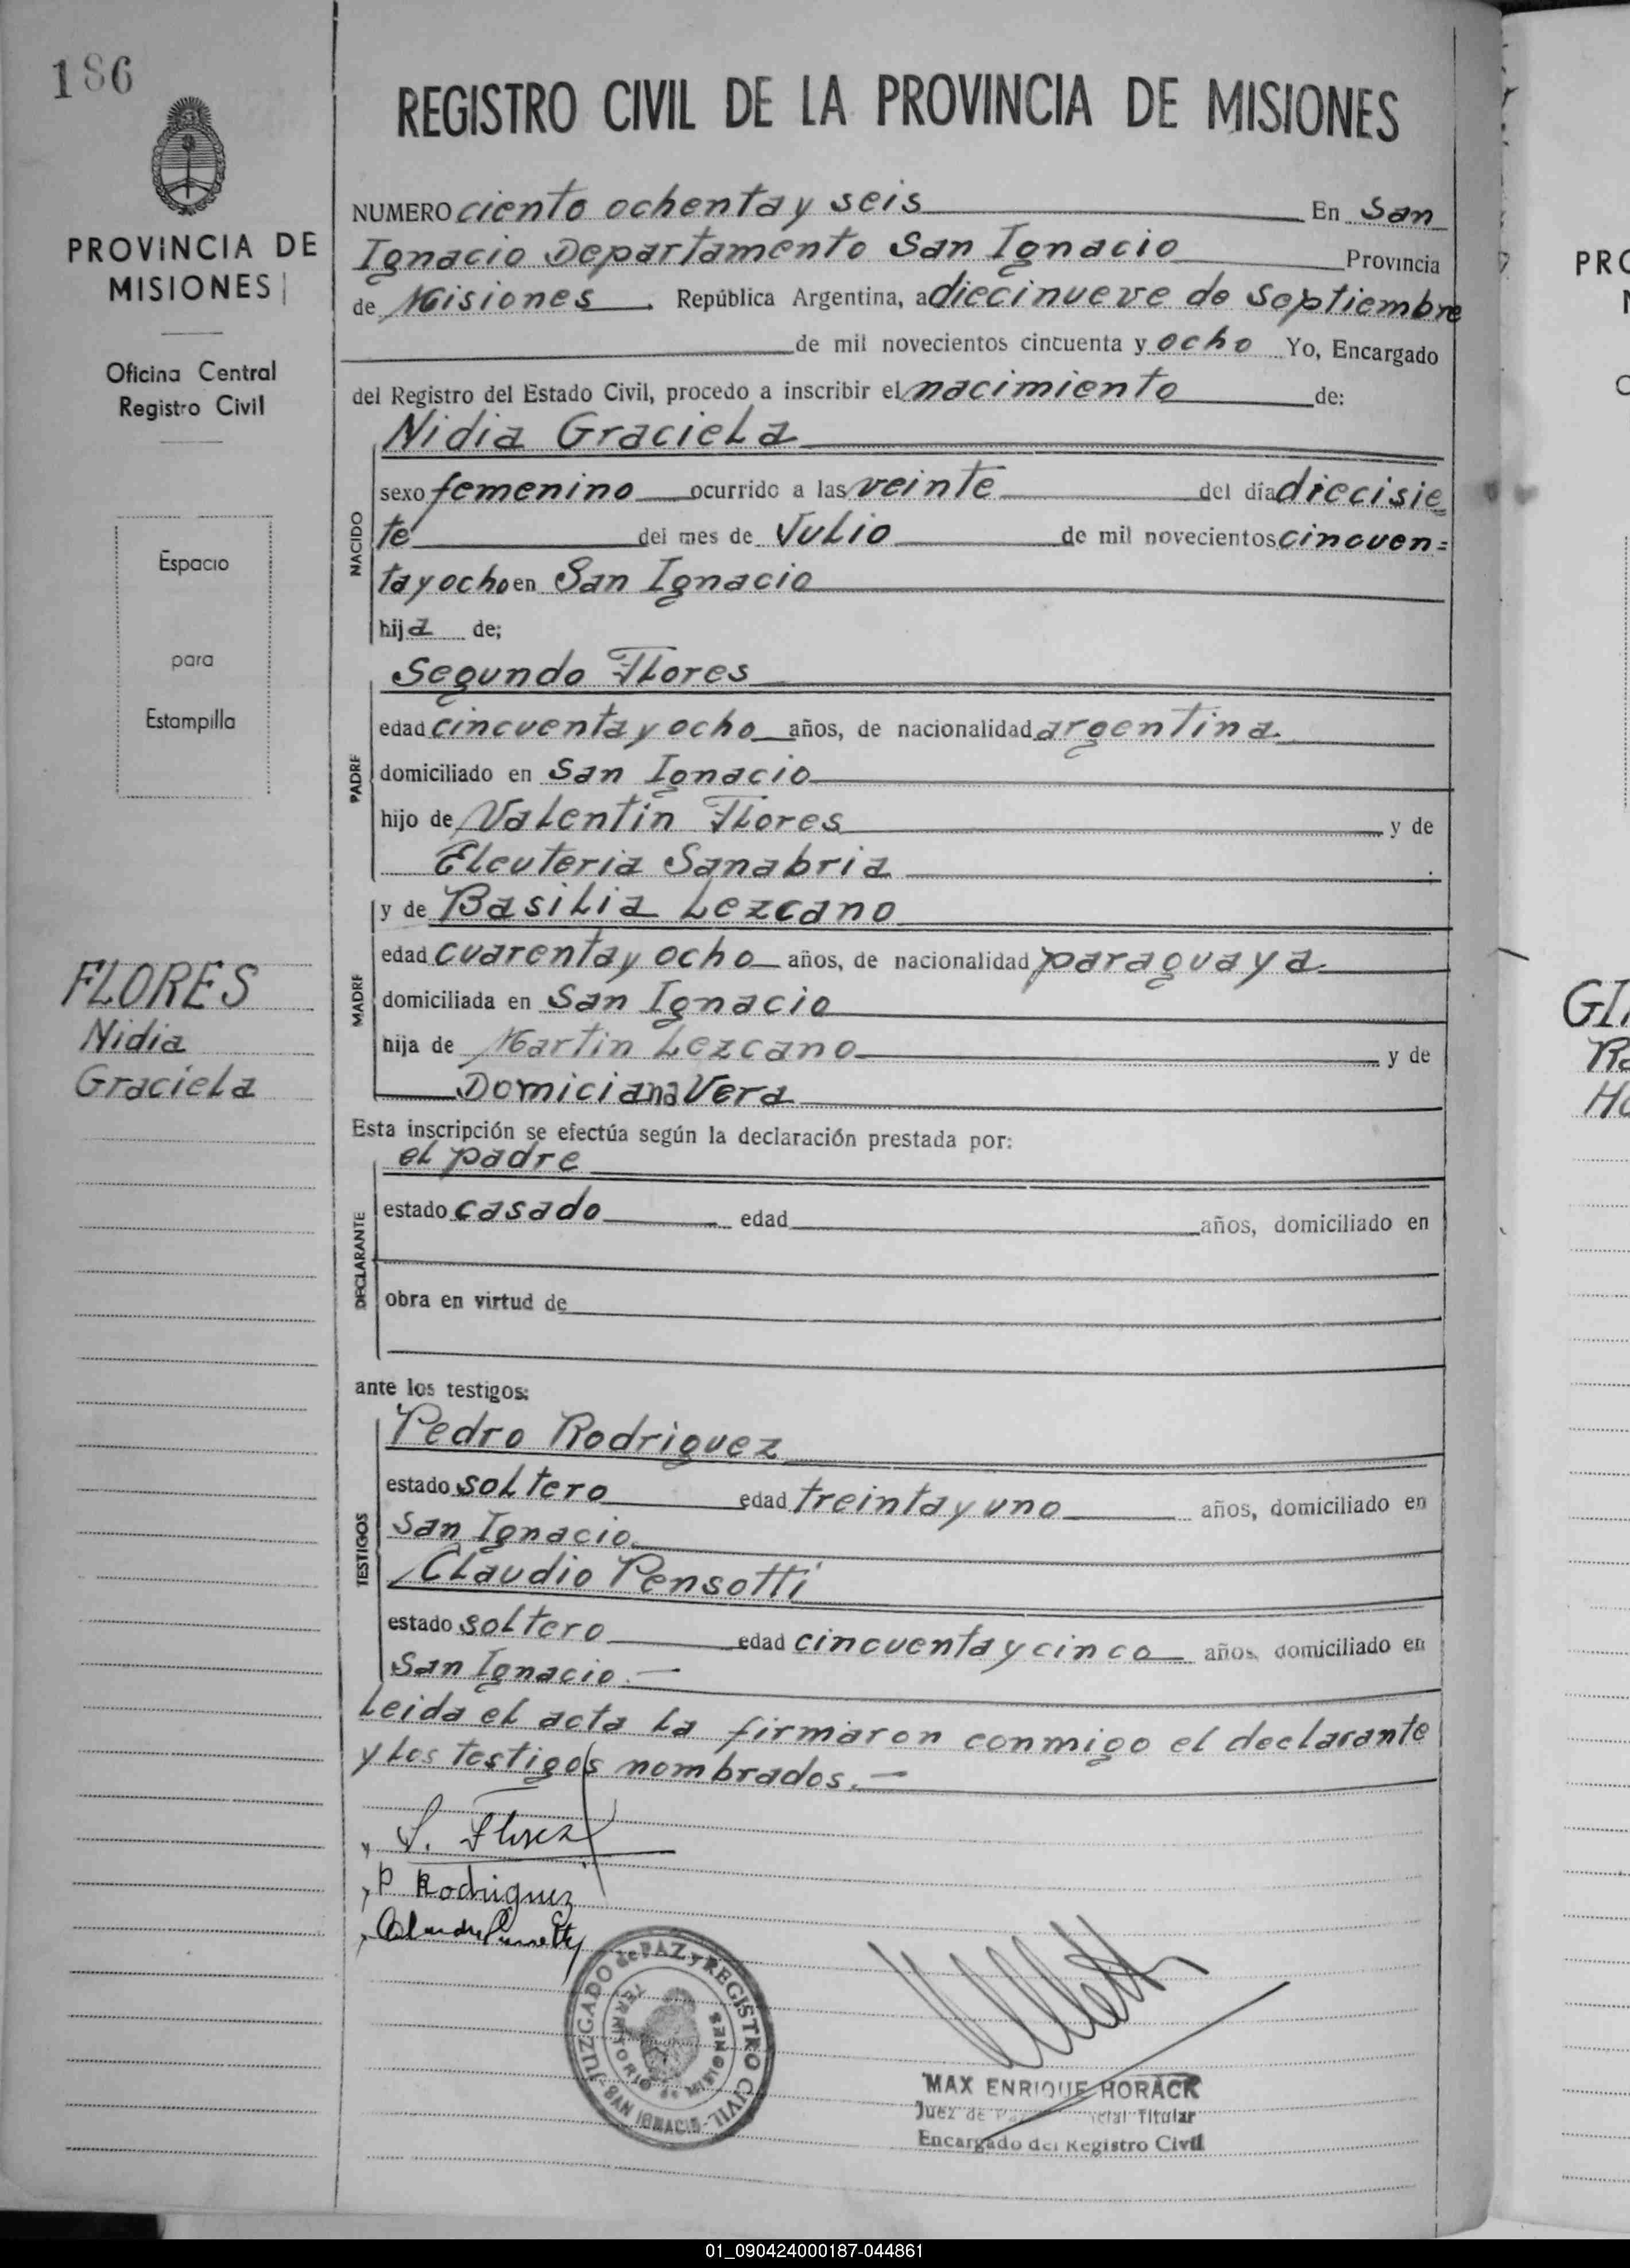 186
PROVINCIA DE
MISIONES
Oficina Central
Registro Civil
Espacio
para
Estampilla
FLORES
Nidia
Graciela
REGISTRO CIVIL DE LA PROVINCIA DE MISIONES
NUMERO ciento ochenta y seis En San
Ignacio Departamento San Ignacio Provincia
de Misiones República Argentina, a diecinueve de septiembre
de mil novecientos cincuenta y ocho Yo, Encargado
del Registro del Estado Civil, procedo a inscribir el nacimiento de:
NACIDO
Nidia Graciela
sexo femenino ocurrido a las veinte del día diecisie
te del mes de Julio de mil novecientos cincuen=
ta y ocho en San Ignacio
hija de;
PADRE
Segundo Flores
edad cincuenta y ocho años, de nacionalidad argentina
domiciliado en San Ignacio
hijo de Valentin Flores y de
Eleuteria Sanabria
MADRE
y de Basilia Lezcano
edad cuarenta y ocho años, de nacionalidad paraguaya
domiciliada en San Ignacio
hija de Martin Lezcano y de
Domiciana Vera
Esta inscripción se efectúa según la declaración prestada por:
DECLARANTE
el padre
estado casado edad años, domiciliado en
obra en virtud de
ante los testigos:
TESTIGOS
Pedro Rodriguez
estado soltero edad treinta y uno años, domiciliado en
San Ignacio
Claudio Pensotti
estado soltero edad cincuenta y cinco años, domiciliado en
San Ignacio.—
Leida el acta la firmaron conmigo el declarante
y los testigos nombrados.—
S. Flores
P Rodriguez
JUZGADO de PAZ y REGISTRO CIVIL
SAN IGNACIO
TERRITORIO de MISIONES
MAX ENRIQUE HORACK
Juez de Titular
Encargado del Registro Civil
PRO
GI
Ra
Ho
01_090424000187-044861